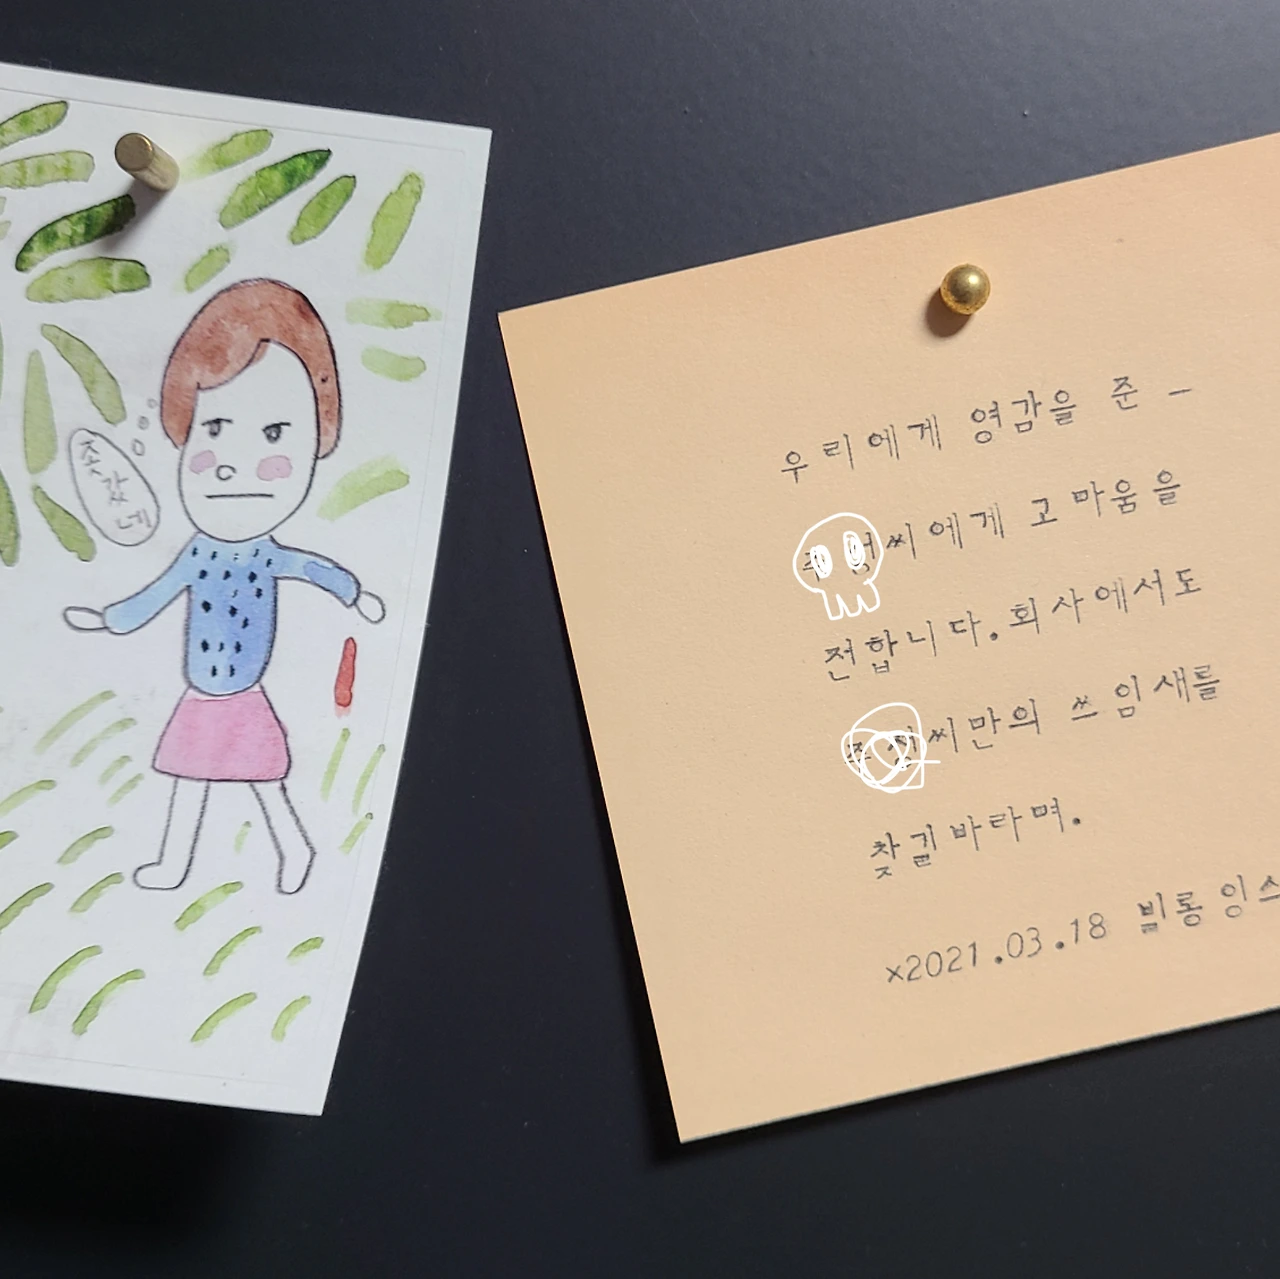 좃
같
네
우리에게 영감을 준 -
씨에게 고마움을
전합니다. 회사에서도
씨만의 쓰임새를
찾길 바라며.
×2021.03.18 빌롱잉스